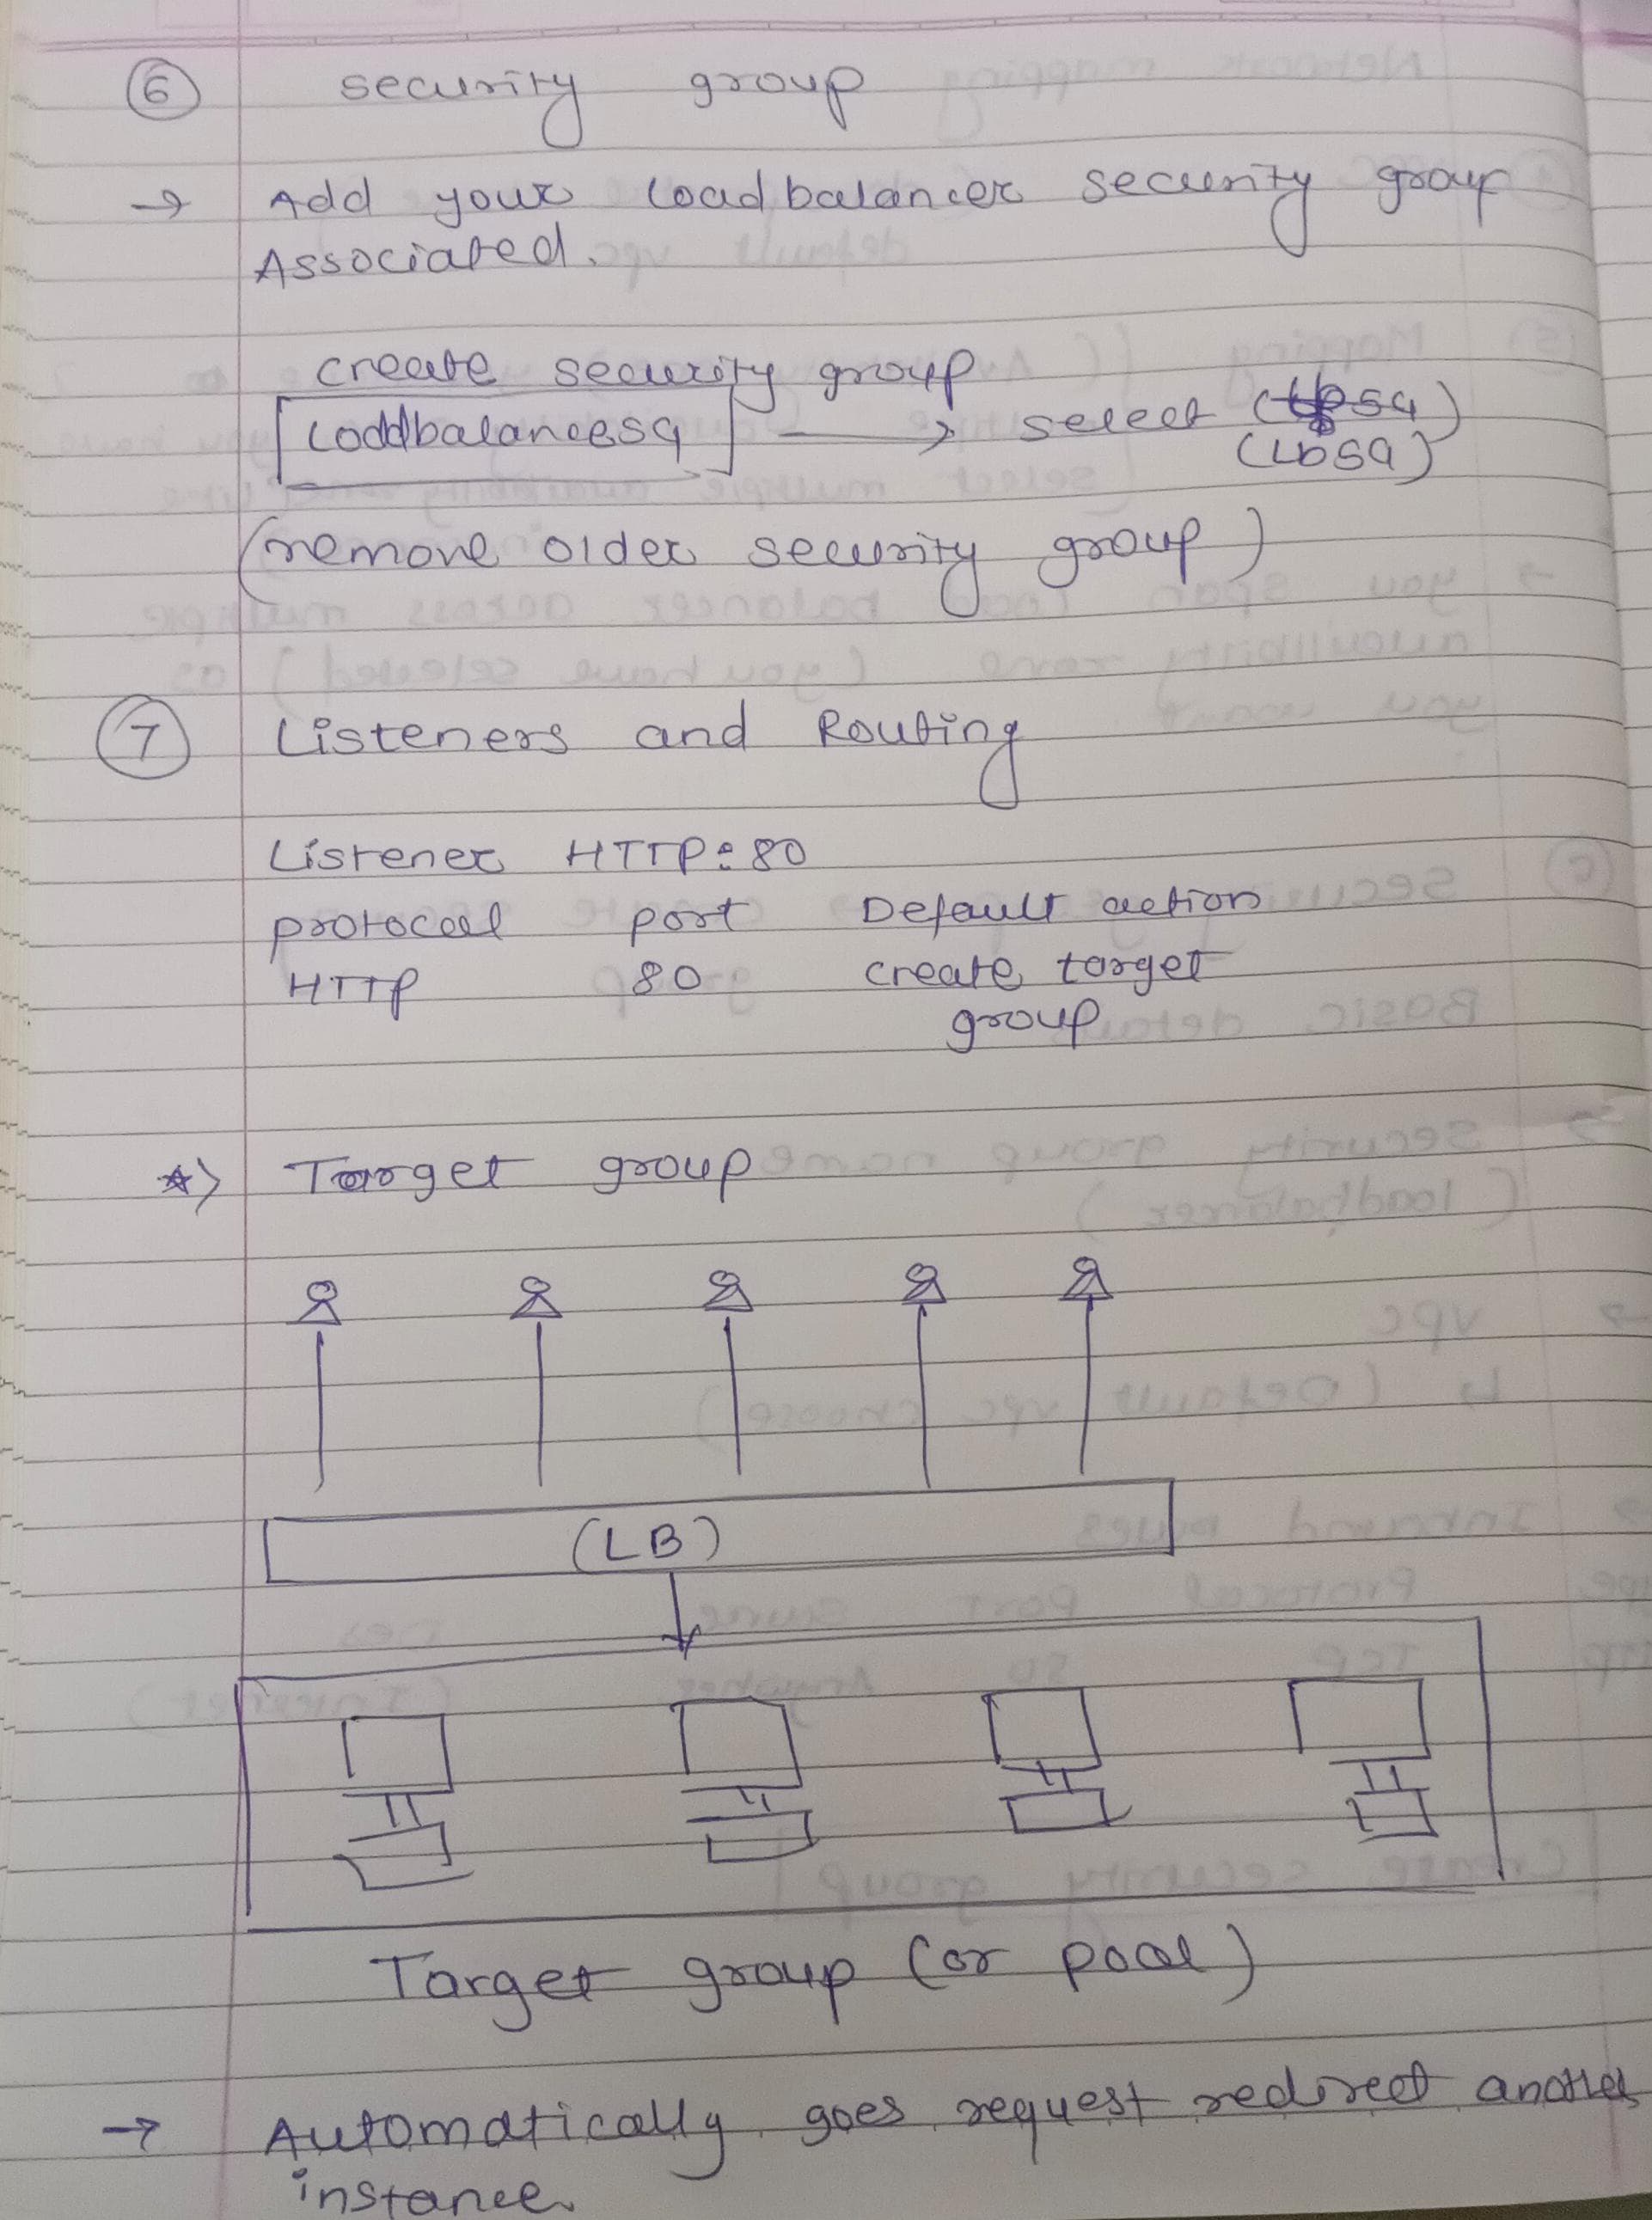 6 security group
→ Add your loadbalancer security group
Associated.
create security group
loddbalancesg → select
(LbSG)
(remove older security group)
7 Listeners and Routing
Listener HTTP:80
protocol port Default action
HTTP 80 create target
group
*) Target group
(LB)
Target group (or pool)
→ Automatically goes request redirect another
instance